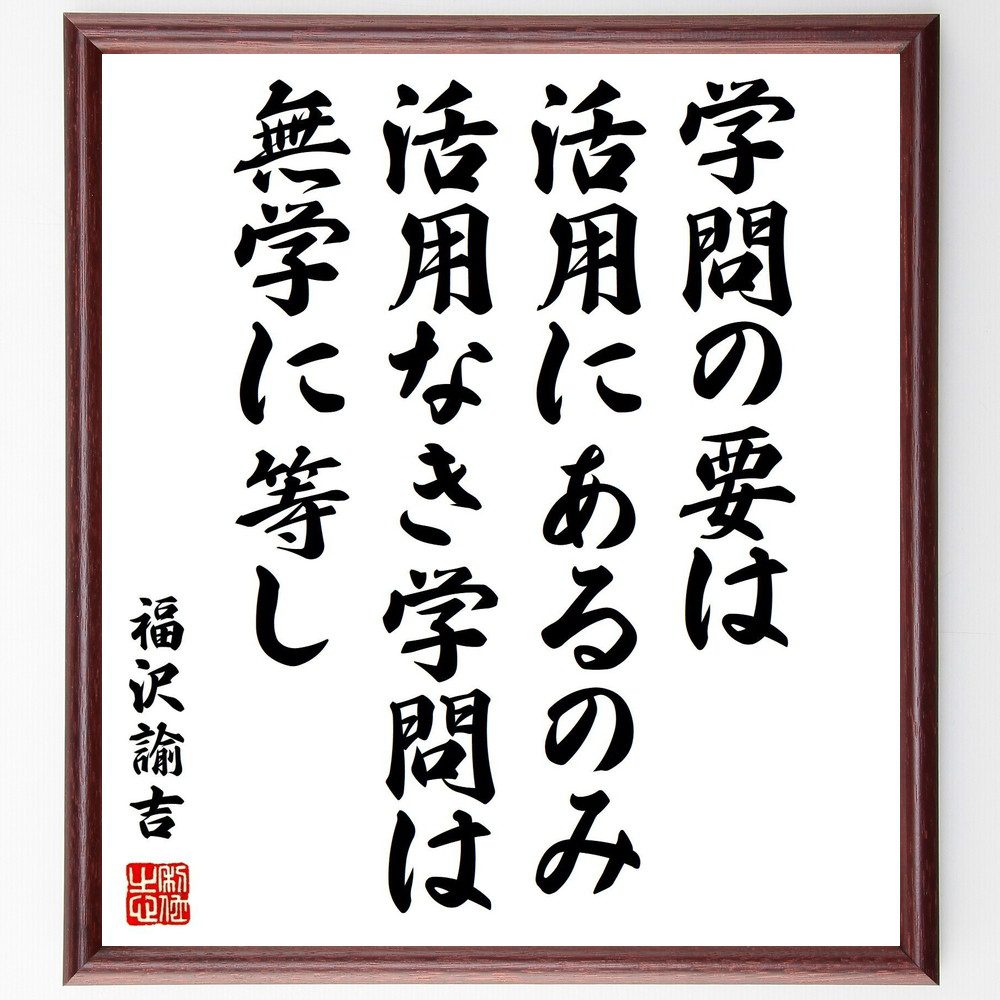 学問の要は
活用にあるのみ
活用なき学問は
無学に等し
福沢諭吉